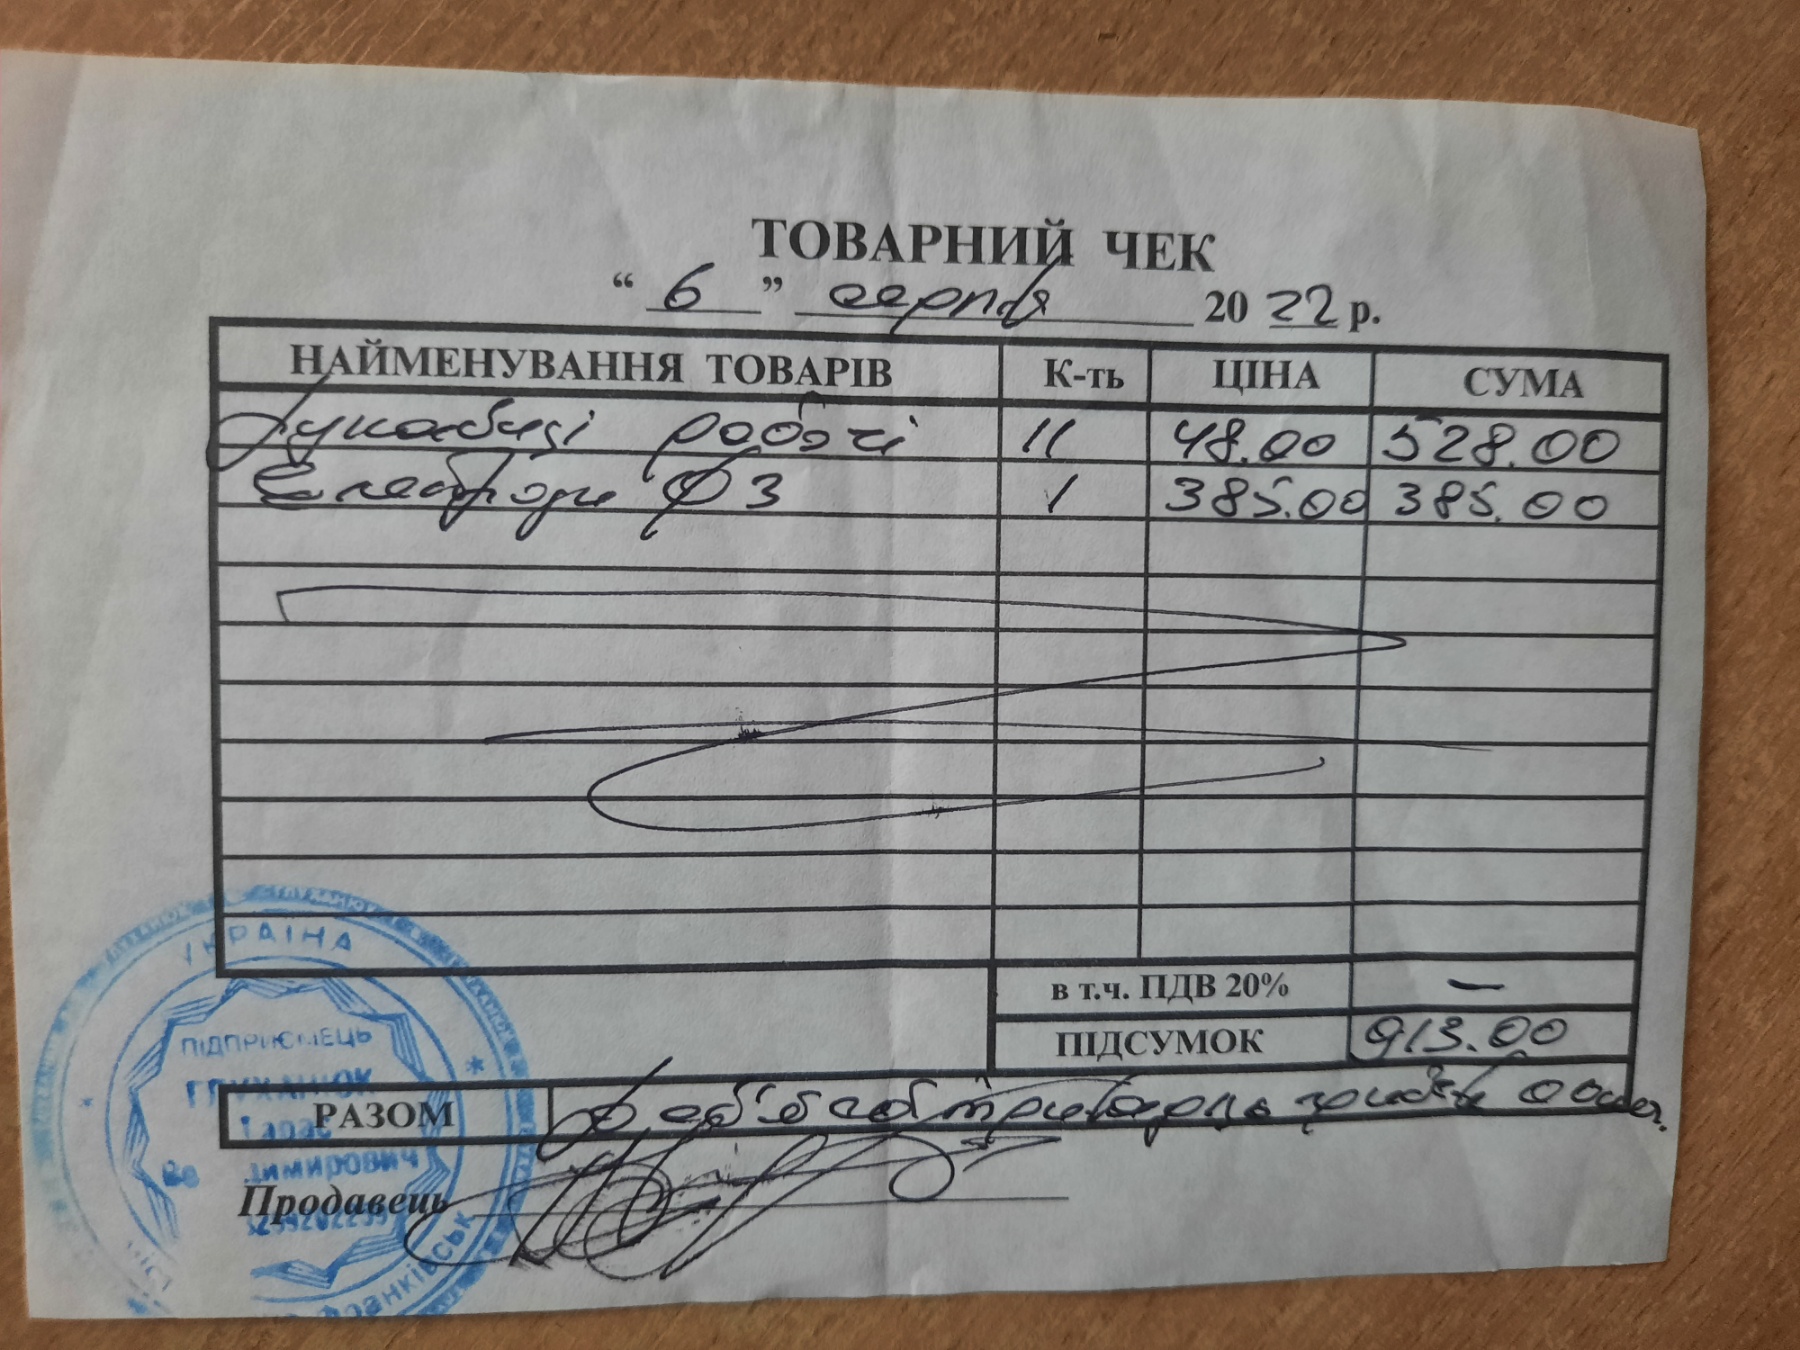 ТОВАРНИЙ ЧЕК
“ 6 ” серпня 20 22 р.
НАЙМЕНУВАННЯ ТОВАРІВ К-ть ЦІНА СУМА
Рукавиці робочі 11 48.00 528.00
Електроди Ф3 1 385.00 385.00
в т.ч. ПДВ 20% —
ПІДСУМОК 913.00
РАЗОМ Дев'ятсот тринадцять гривень 00коп.
Продавець
УКРАЇНА
ПІДПРИЄМЕЦЬ
ГЛУХАНЮК
Тарас
Володимирович